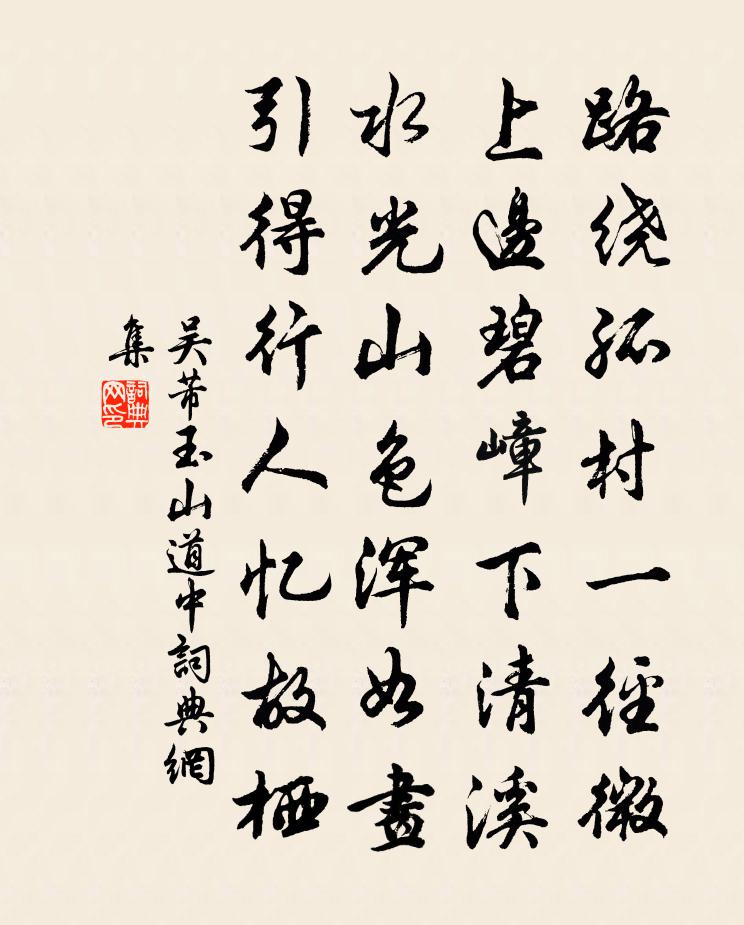 路绕孤村一径微
上邊碧嶂下清溪
水光山色浑如畫
引得行人忆故栖
吴芾玉山道中詞典網
集
詞典网印